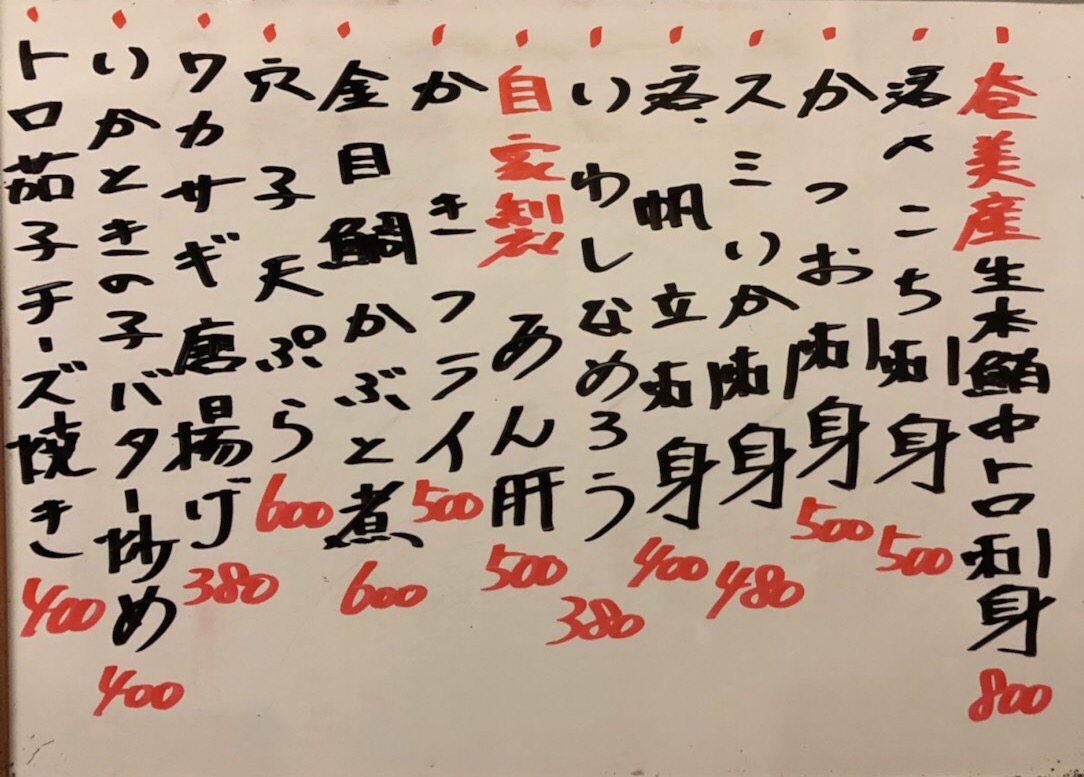 奄美産生本鮪中トロ刺身 800
活〆こち刺身 500
かつお刺身 500
スミいか刺身 480
活帆立刺身 400
いわしなめろう 380
自家製あん肝 500
かきフライ 500
金目鯛かぶと煮 600
穴子天ぷら 600
ワカサギ唐揚げ 380
いかときの子バター炒め 400
トロ茄子チーズ焼き 400